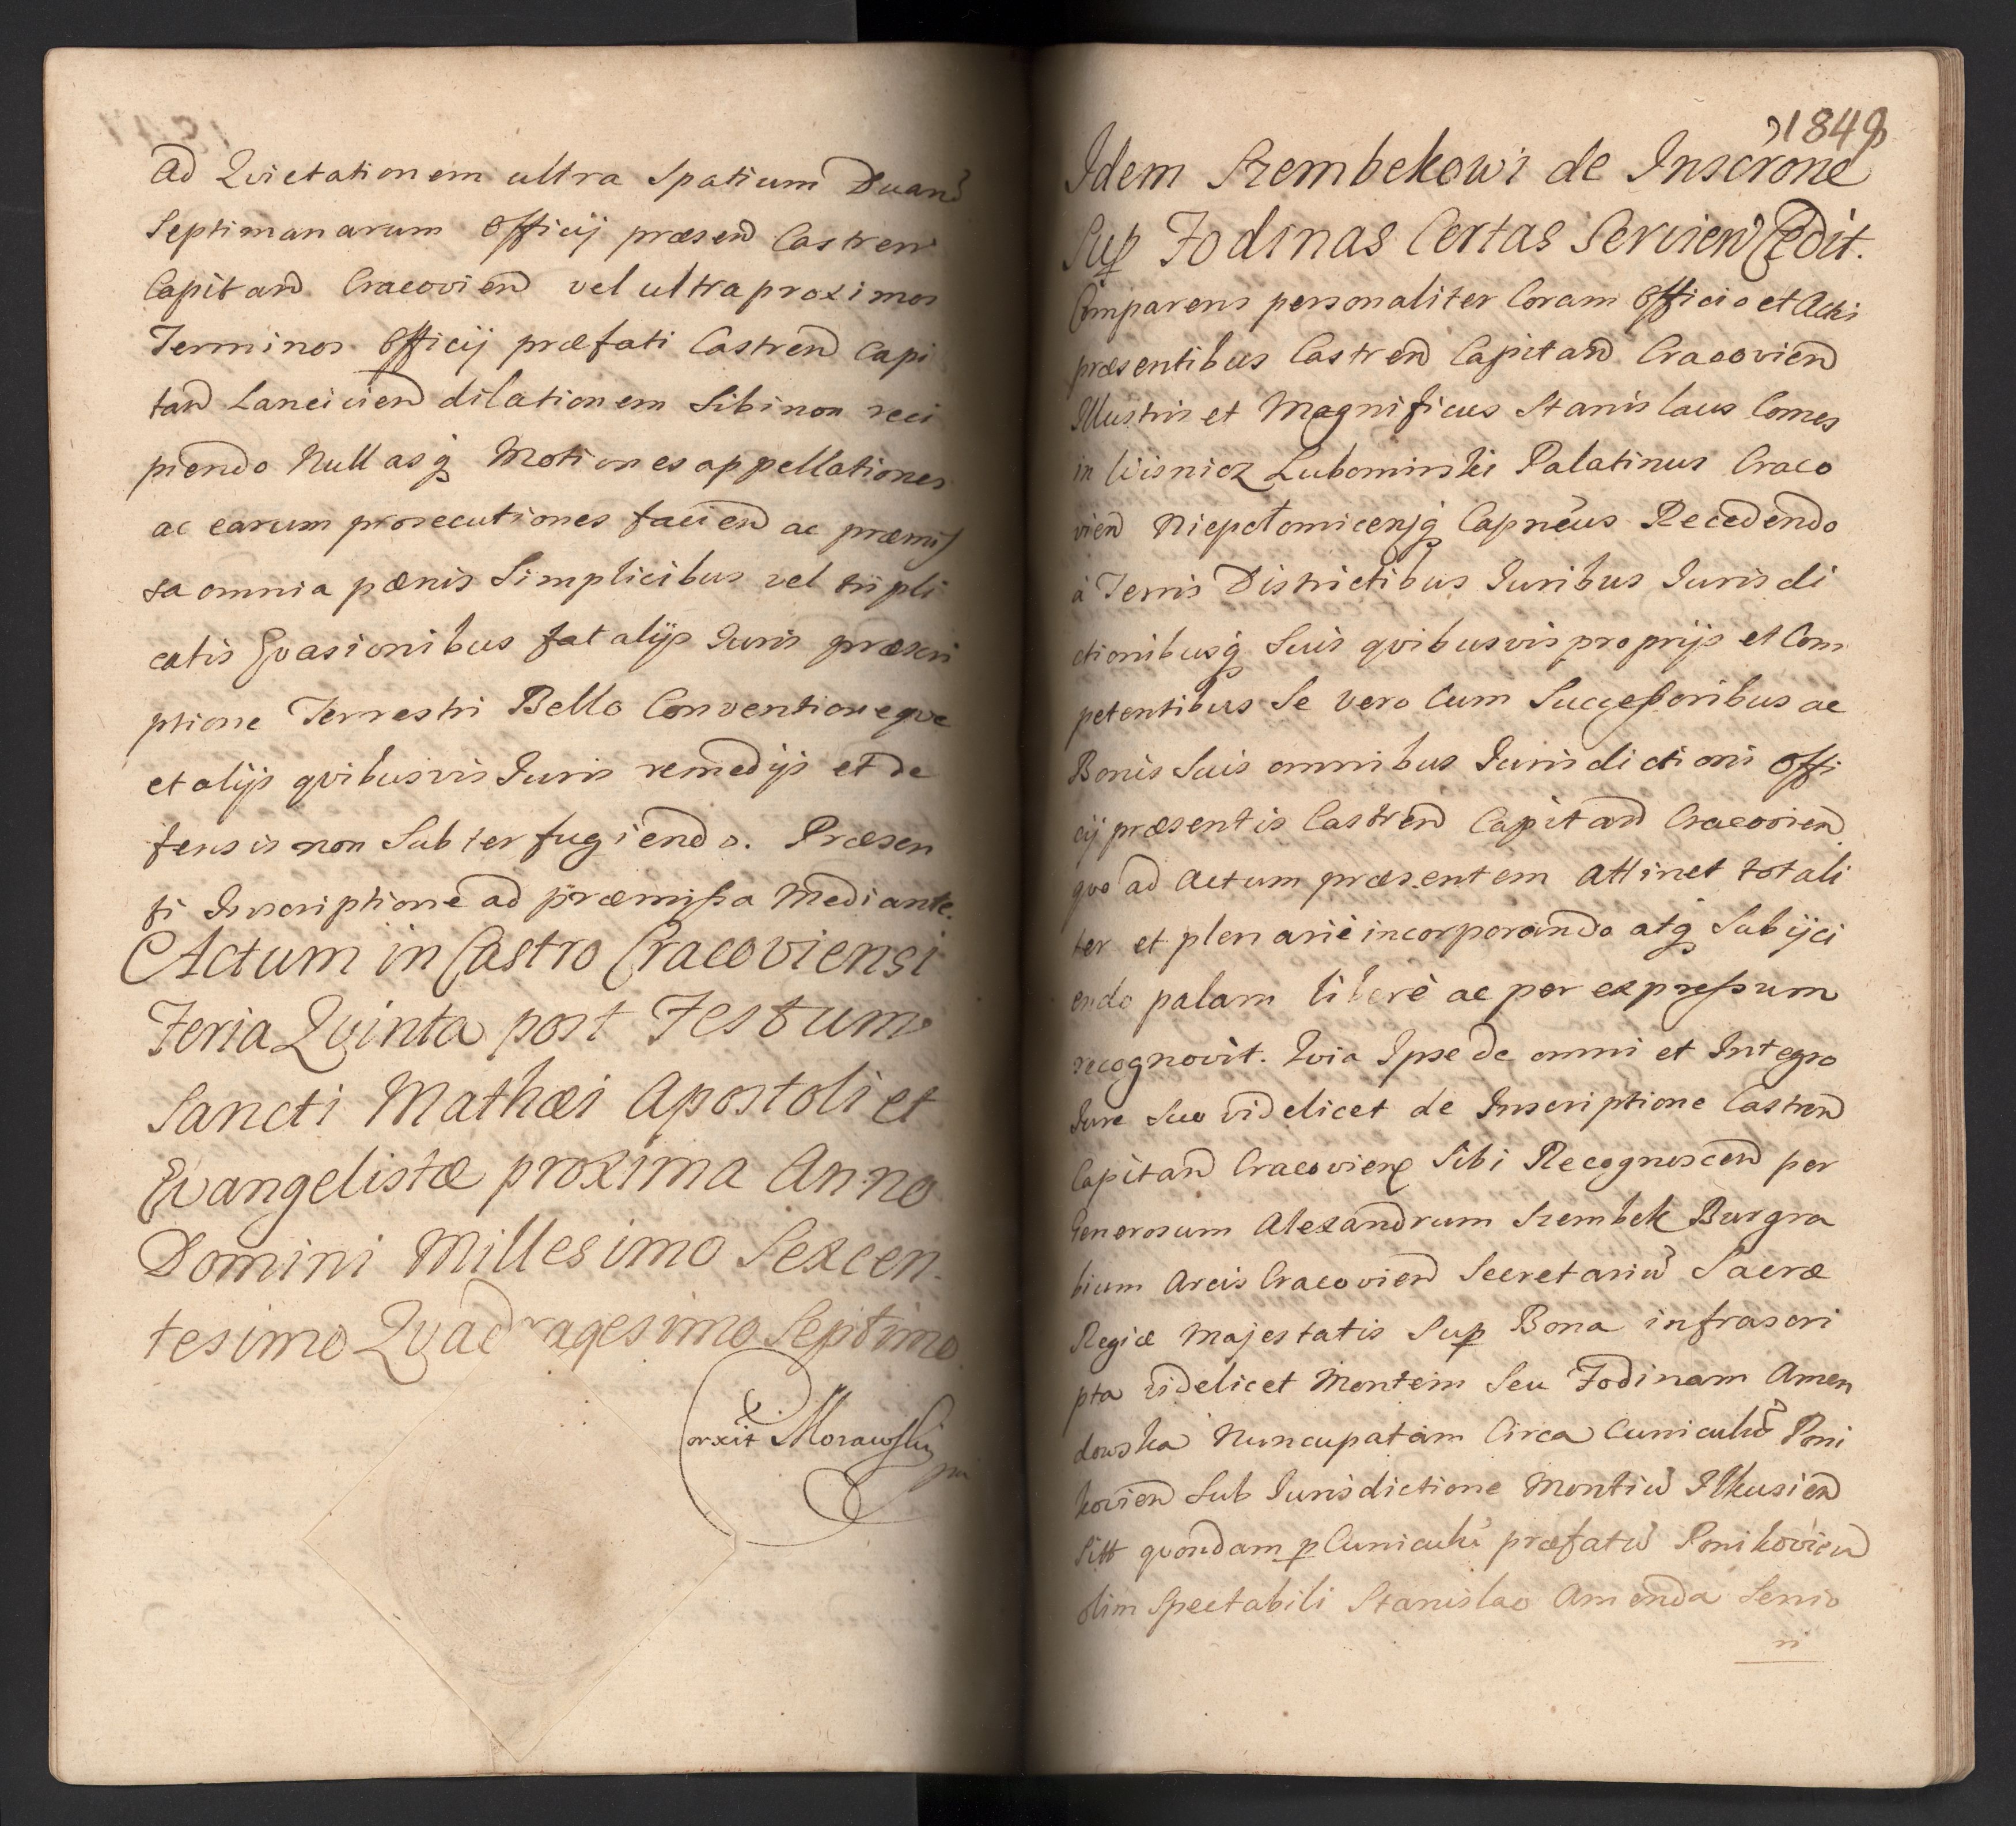 Ad Qvietationem ultra Spatium Duarũ
Septimanarum Officij præsen Castren
Capitan Cracovien vel ultra proximos
Terminos Officij præfati Castren Capi
tan Lancicien dilationem Sibi non reci
piendo Nullasq Motiones appellationes
ac earum prosecutiones facien ac præmis
sa omnia pænis Simplicibus vel tripli
catis Evasionibus fatalijs Iuris præscri
ptione Terrestri Bello Conventioneqve
et alijs qvibusvis Iuris remedijs et de
fensis non Subterfugiendo. Præsen
ti Inscriptione ad præmissa Mediante.
Actum in Castro Cracoviensi
Feria Qvinta post Festum
Sancti Mathæi Apostoli et
Evangelistæ proxima Anno
Domini Millesimo Sexcen
tesimo Qvadragesimo Septimo.
Morawski
1848
Idem Szembekowi de Inscrone
Sup Fodinas Certas Servien Cedit.
Comparens personaliter Coram Officio et Actis
præsentibus Castren Capitan Cracovien
Illustris et Magnificus Stanislaus Comes
in Wisnicz Lubomirski Palatinus Craco
vien Niepołomicensq Capneus Recedendo
à Terris Districtibus Iuribus Iurisdi
ctionibusq Suis qvibusvis proprijs et Com
petentibus Se vero Cum Successoribus ac
Bonis Suis omnibus Iurisdictioni Offi
cij præsentis Castren Capitan Cracovien
qvo ad Actum præsentem Attinet totali
ter et plenariè incorporando atq Subijci
endo palam liberè ac per expressum
recognovit. Qvia Ipse de omni et Integro
Iure Suo videlicet de Inscriptione Castren
Capitan Cracovien Sibi Recognoscen per
Generosum Alexandrum Szembek Burgra
bium Arcis Cracovien Secretariũ Sacræ
Regiæ Majestatis Sup Bona infrascri
pta videlicet Montem Seu Fodinam Amen
dowska Nuncupatam Circa Cuniculũ Poni
kovien Sub Iurisdictione Montiũ Ilkusien
Sitt qvondam p Cuniculũ præfatũ Ponikovien
olim Spectabili Stanislao Amenda Senio
ri